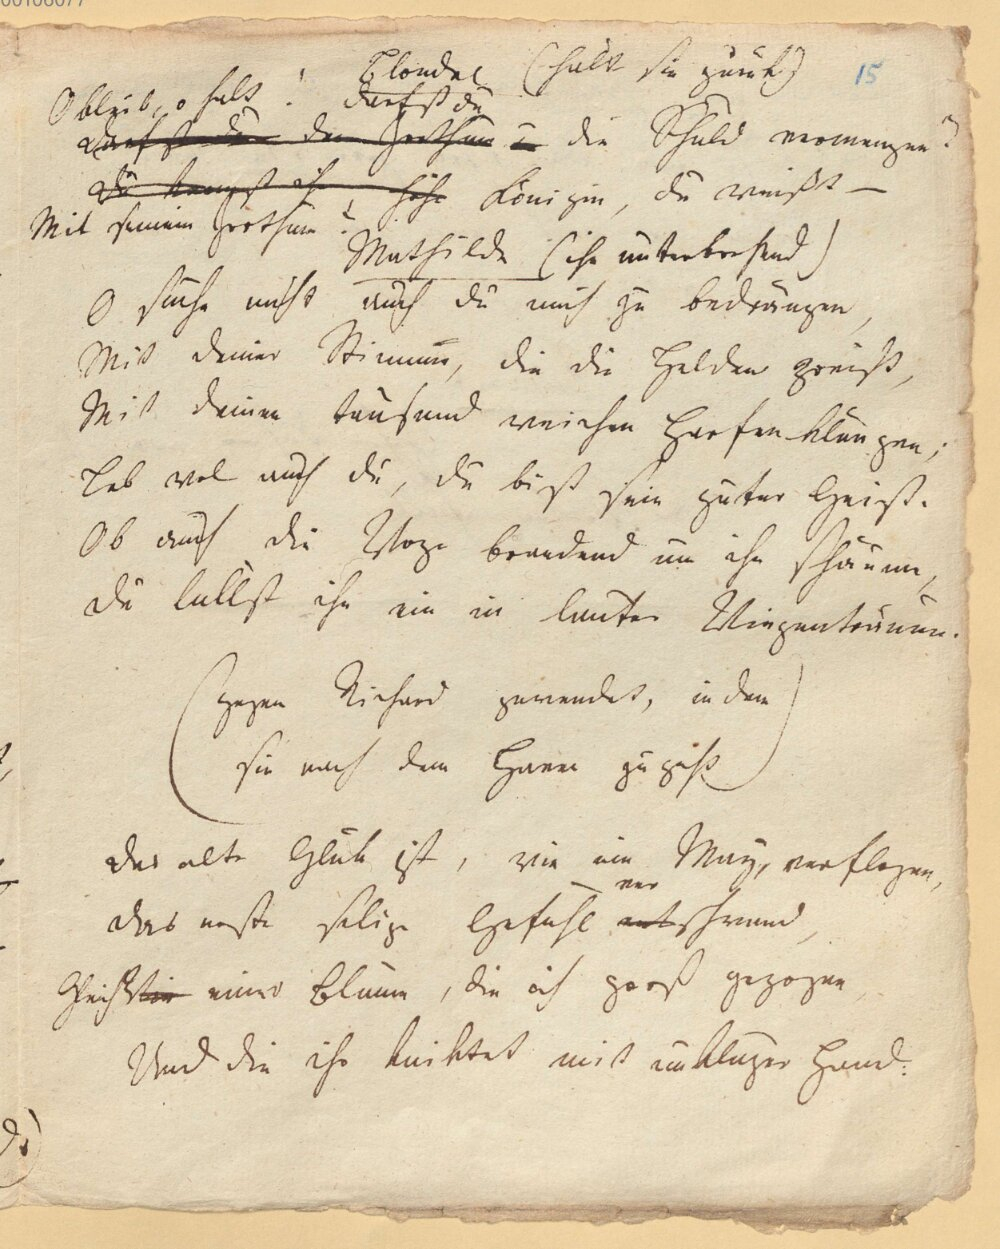 00106077
Blondel (hält sie zurük) 15
O bleib, o halt! darfst du
darfst du den Irrthum u die Schuld vermengen?
Du kennst ihn, Königin, du weißt —
Mit seinem Irrthum?
Mathilde (ihn unterbrechend)
O suche nicht auch du mich zu bedrängen,
Mit deiner Stimme, die die Helden preist,
Mit deinen tausend weichen Harfenklängen;
Leb wol auch du, du bist sein guter Geist.
Ob auch die Woge brandend um ihn schäume,
du lullst ihn ein in lauter Wiegenträume.
(gegen Richard gewendet, indem
sie nach dem Hause zugeht)
das alte Glük ist, wie ein May, verflogen,
ver
das erste selige Gefühl entschwand,
Gleich einer Blume, die ich groß gezogen,
Und die ihr kniktet mit unkluger Hand.